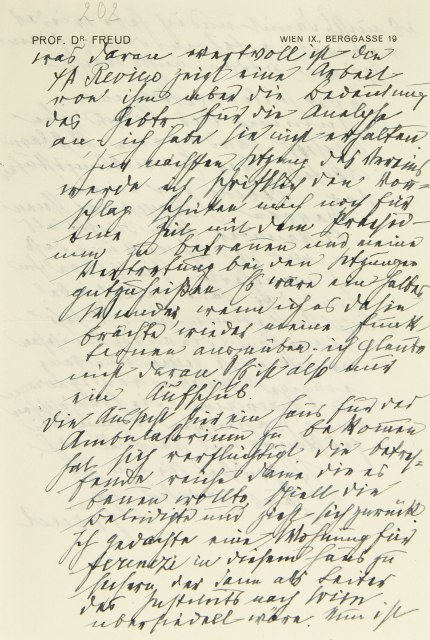 202
PROF. DR. FREUD WIEN IX., BERGGASSE 19
was daran wertvoll ist. Die
ΨA Review zeigt eine Arbeit
von ihm ueber die Bedeutung
des für die Analyse
an. ich habe sie nicht erhalten
zur nächsten Sitzung des Vereins
werde ich schriftlich den Vor=
schlag mich noch für
eine Zeit mit dem Praesidi-
um zu betrauen und meine
Vertretung bei den Sitzungen
gutzuheißen. Es wäre ein halbes
Wunder wenn ich es dahin
brächte wieder meine Funk
tionen auszuüben. ich glaube
nicht daran. Es ist also nur
ein Aufschub.
Die Aussicht hier ein Haus für das
Ambulatorium zu bekommen
hat sich verflüchtigt die betref=
fende reiche Dame die es
bauen wollte, spielt die
Beleidigte und zieht sich zurück.
Ich gedachte eine Wohnung für
Ferenczi in diesem Haus zu
sichern, der dann als Leiter
des Instituts nach Wien
übersiedelt wäre. Nun ist